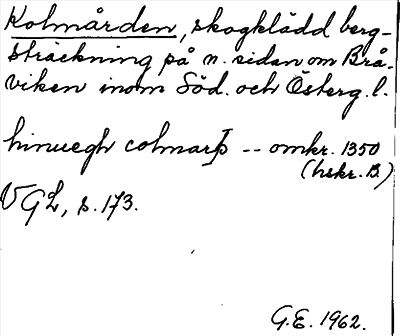 Kolmården, skogklädd berg-
sträckning på n. sidan om Brå-
viken inom Söd. och Österg. l.
hinuegh colmarþ -- omkr. 1350
(hskr. B.)
VGL, s. 173.
G.E. 1962.